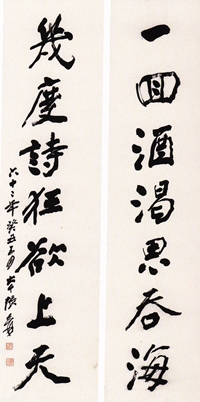 一回酒渴思吞海
幾度詩狂欲上天
六十二年癸丑